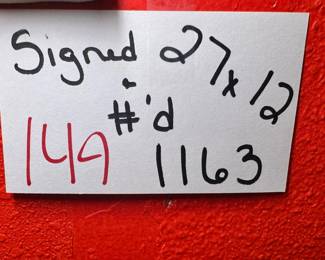 Signed 27x12
& #'d
149 1163